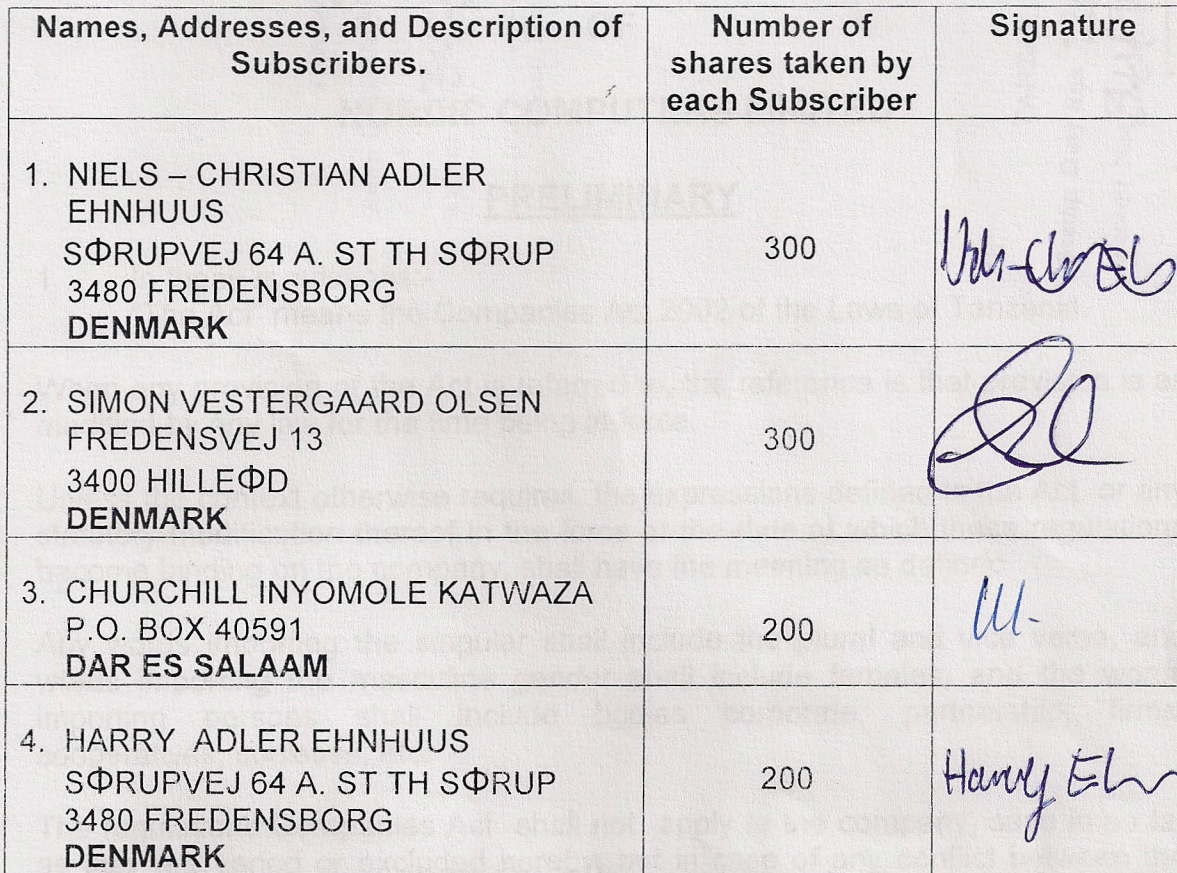 Names, Addresses, and Description of Subscribers.
Number of shares taken by each Subscriber
Signature
1. NIELS – CHRISTIAN ADLER
EHNHUUS
SΦRUPVEJ 64 A. ST TH SΦRUP
3480 FREDENSBORG
DENMARK
300
2. SIMON VESTERGAARD OLSEN
FREDENSVEJ 13
3400 HILLEΦD
DENMARK
300
3. CHURCHILL INYOMOLE KATWAZA
P.O. BOX 40591
DAR ES SALAAM
200
4. HARRY ADLER EHNHUUS
SΦRUPVEJ 64 A. ST TH SΦRUP
3480 FREDENSBORG
DENMARK
200
Harry